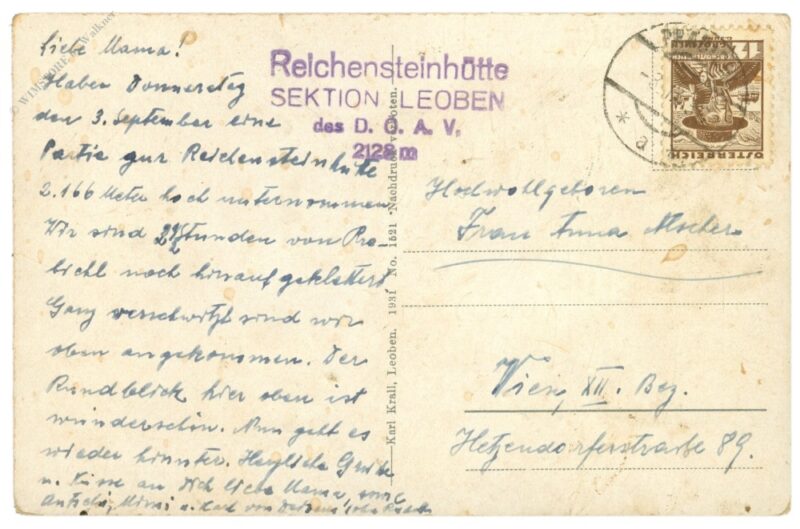 Liebe Mama!
Haben Donnerstag
den 3. September eine
Partie zur Reichensteinhütte
2.166 Meter hoch unternommen
Wir sind 2½ Stunden von Prä-
bichl noch hinauf geklettert.
Ganz verschwitzt sind wir
oben angekommen. Der
Rundblick hier oben ist
wunderschön. Nun geht es
wieder hinunter. Herzliche Grüße
u. Küsse an Dich liebe Mama, von
Mimi u. Karl
Reichensteinhütte
SEKTION LEOBEN
des D. Ö. A. V.
2128 m
Karl Krall, Leoben. 1931 No. 1521 Nachdruck verboten.
ÖSTERREICH
Hochwohlgeboren
Frau Anna
Wien, XII. Bez.
Hetzendorferstraße 89.